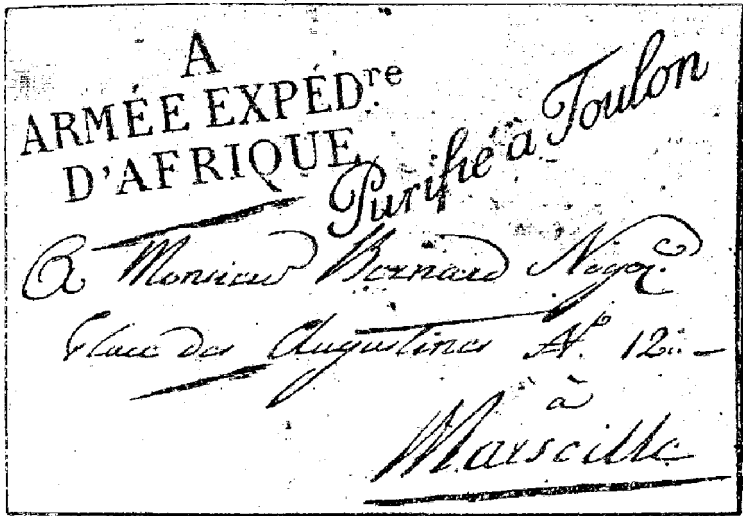 A
ARMÉE EXPÉDre
D'AFRIQUE
Purifié à Toulon
A Monsieur Bernard Negot.
Place des Augustines No. 12
à
Marseille